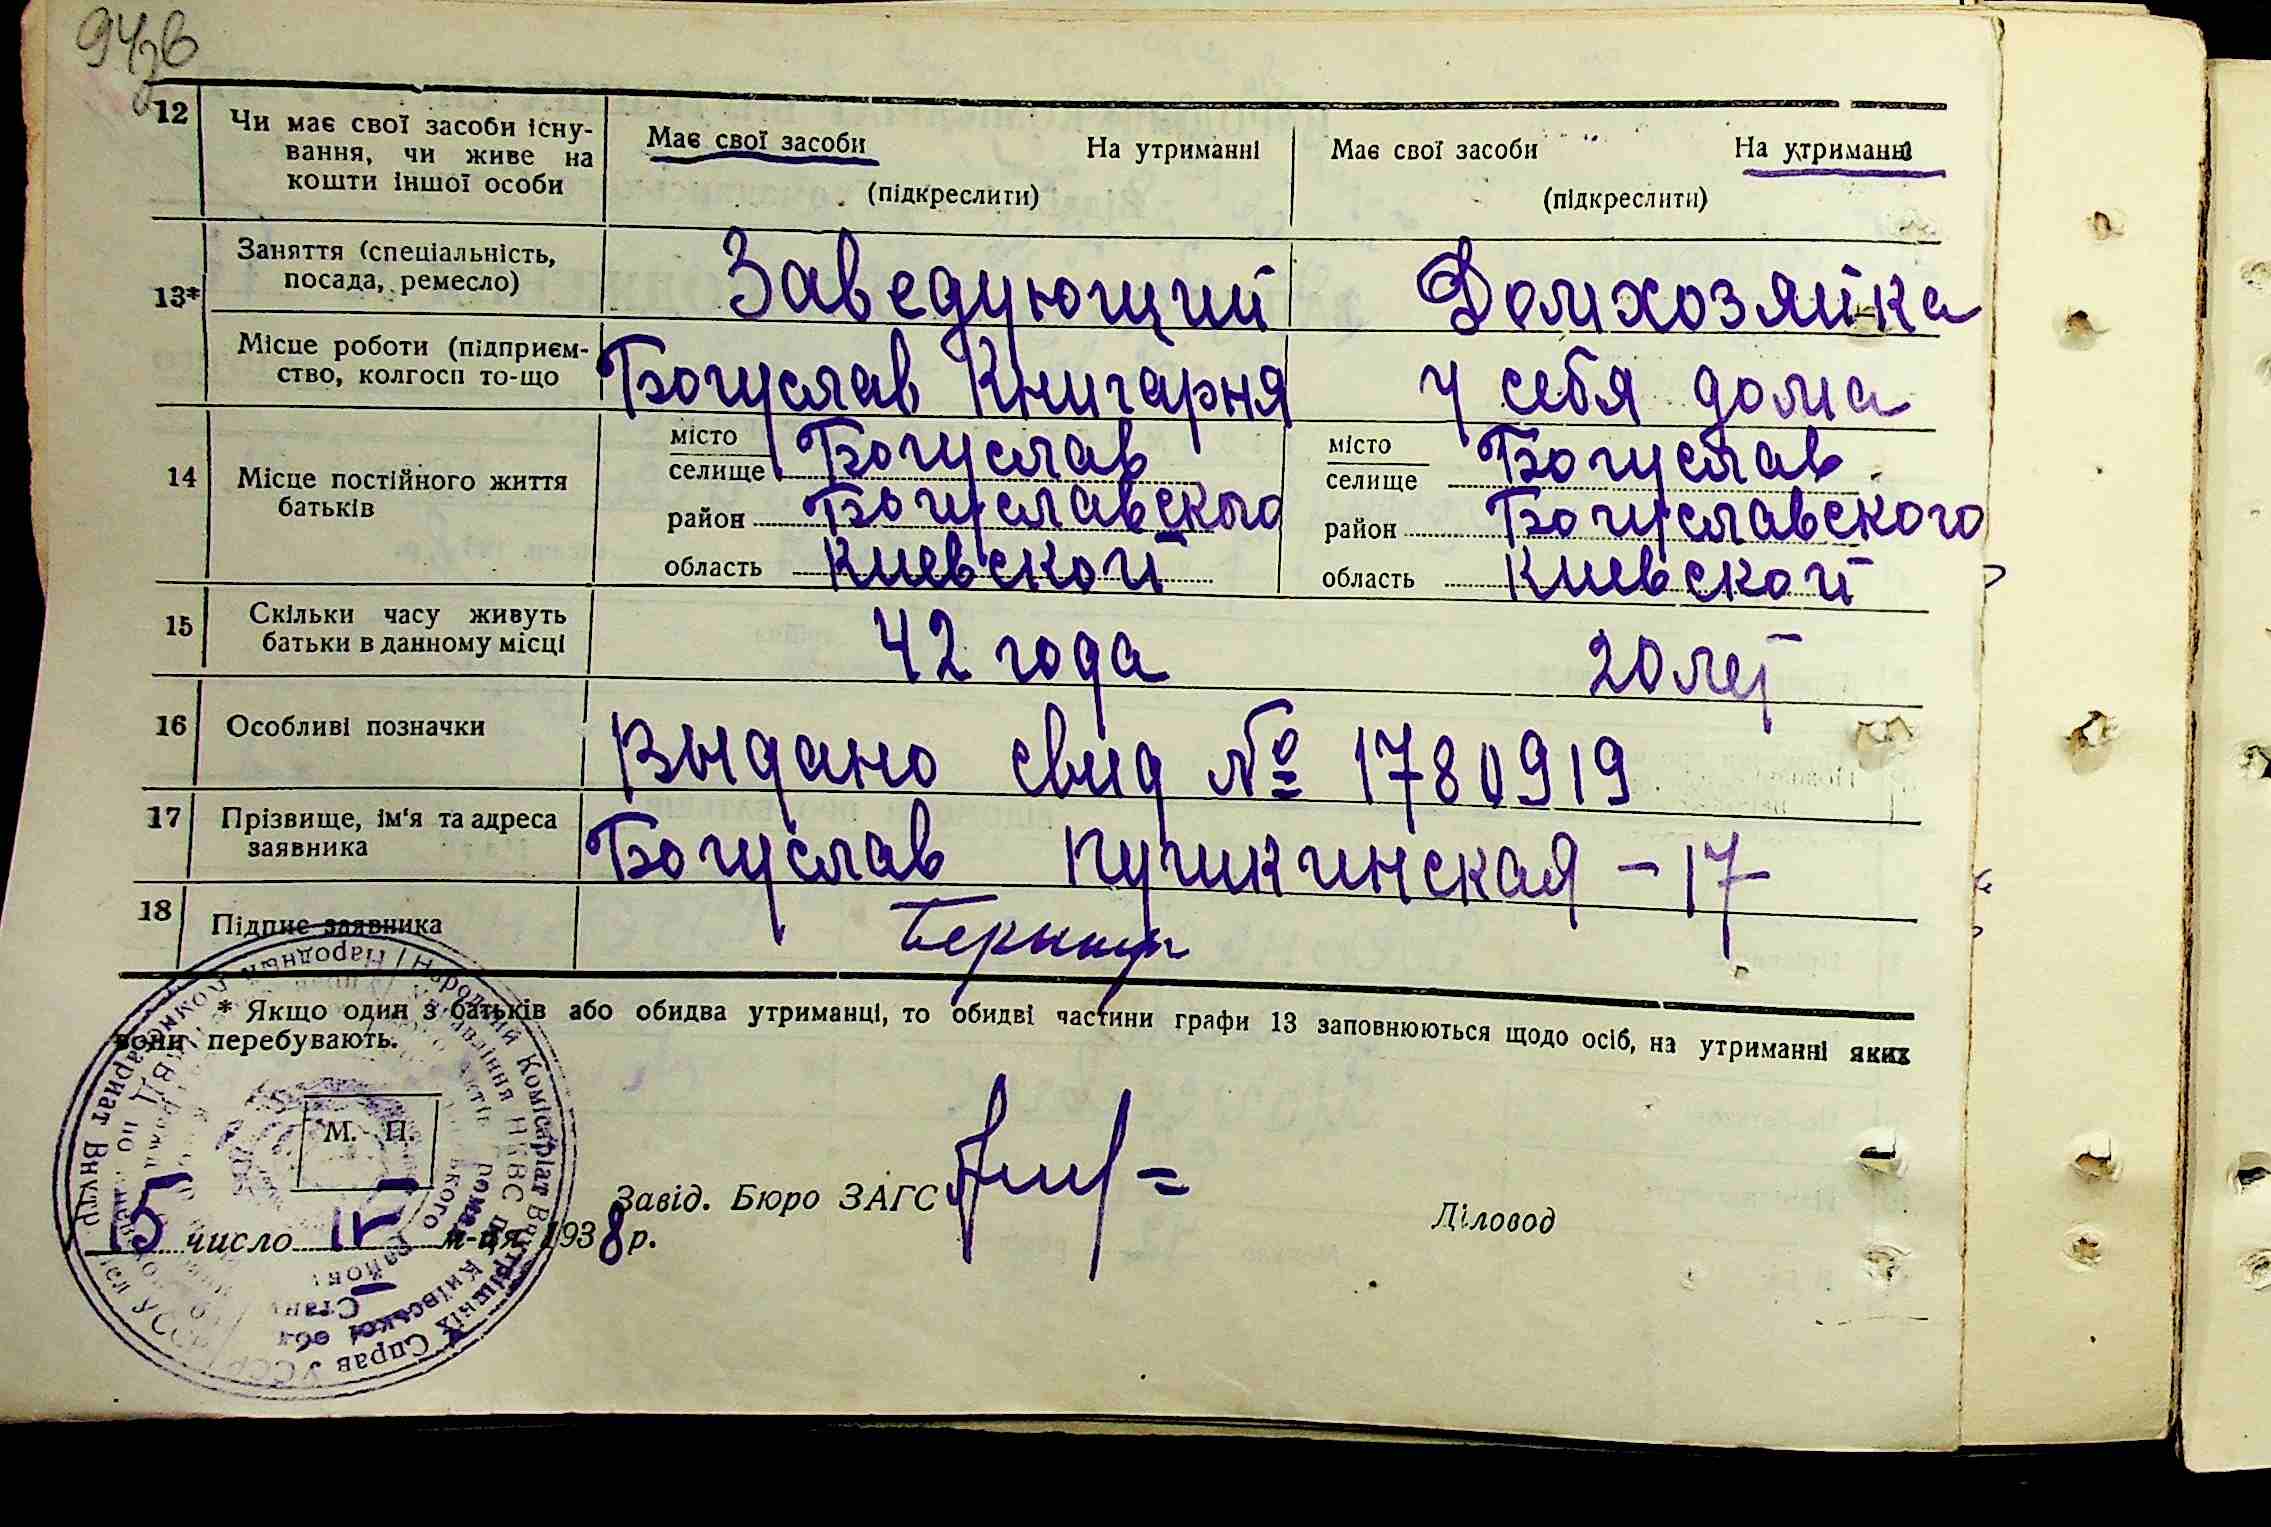 12 Чи має свої засоби існу-
вання, чи живе на
кошти іншої особи
Має свої засоби На утриманні
(підкреслити)
Має свої засоби На утриманні
(підкреслити)
13*
Заняття (спеціальність,
посада, ремесло)
Заведующий
Домхозяйка
Місце роботи (підприєм-
ство, колгосп то-що
Богуслав Книгарня
у себя дома
14 Місце постійного життя
батьків
місто
селище Богуслав
район Богуславского
область Киевской
місто
селище Богуслав
район Богуславского
область Киевской
15 Скільки часу живуть
батьки в данному місці
42 года
20 лет
16 Особливі позначки
Выдано свид № 1780919
17 Прізвище, ім'я та адреса
заявника
Богуслав Пушкинская - 17
18 Підпис заявника
* Якщо один з батьків або обидва утриманці, то обидві частини графи 13 заповнюються щодо осіб, на утриманні яких
вони перебувають.
М. П.
Завід. Бюро ЗАГС
Діловод
15 число м-ця 1938 р.
Народний Комісаріат Внутрішніх Справ УССР